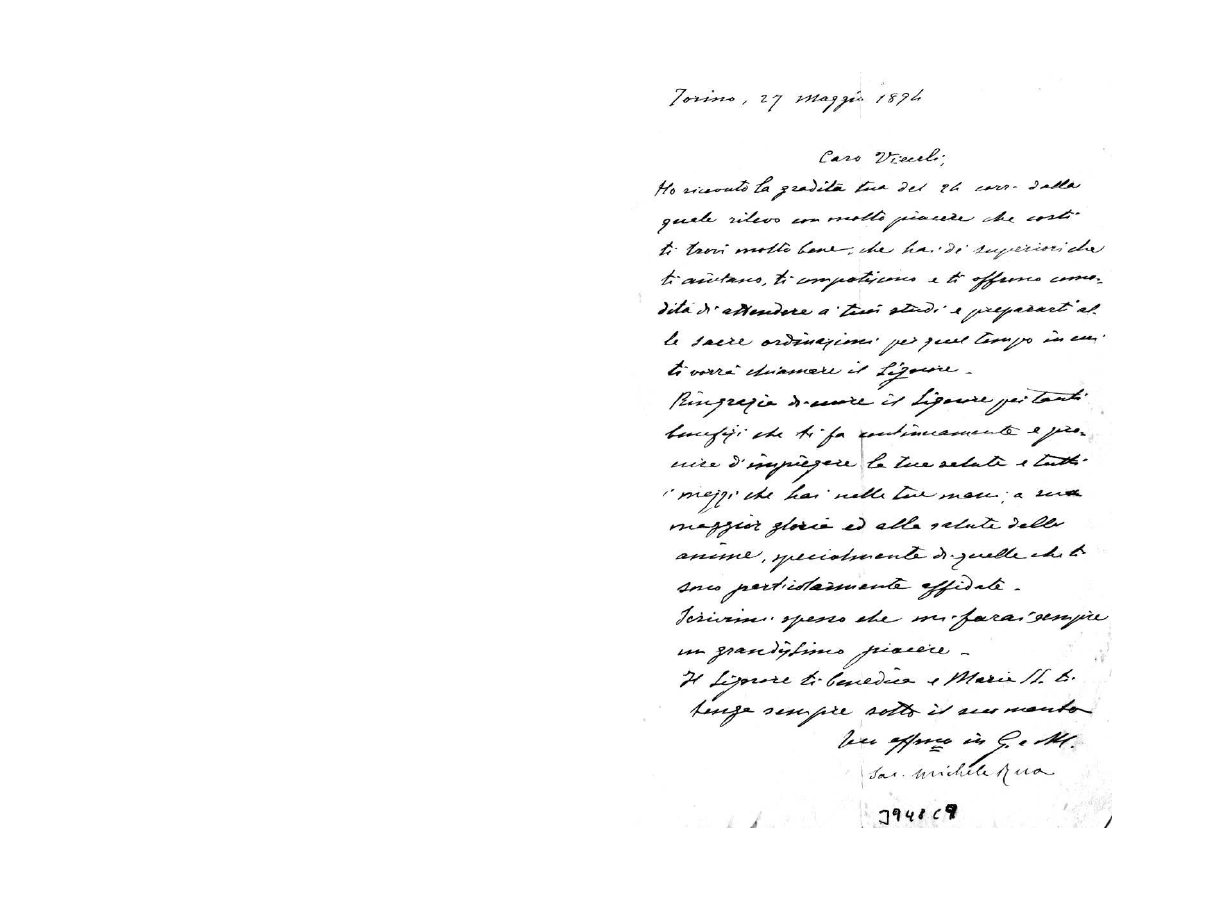 Torino, 27 Maggio 1894
Caro
Ho ricevuto la gradita tua del 24 corr. dalla
quale rilevo con molto piacere che costì
ti trovi molto bene, che hai di superiori che
ti aiutano, ti compatiscono e ti offrono como-
dità di attendere a' tuoi studi e prepararti al-
le sacre ordinazioni per quel tempo in cui
ti vorrà chiamare il Signore.
Ringrazia di cuore il Signore per tanti
benefizi che ti fa continuamente e pro-
cura d'impiegare la tua salute e tutti
i mezzi che hai nelle tue mani, a sua
maggior gloria ed alla salute delle
anime, specialmente di quelle che ti
sono particolarmente affidate.
Scrivimi spesso che mi farai sempre
un grandissimo piacere.
Il Signore ti benedica e Maria SS. ti
tenga sempre sotto il suo manto
Tuo affmo in G. e M.
Sac. Michele Rua
3948C9